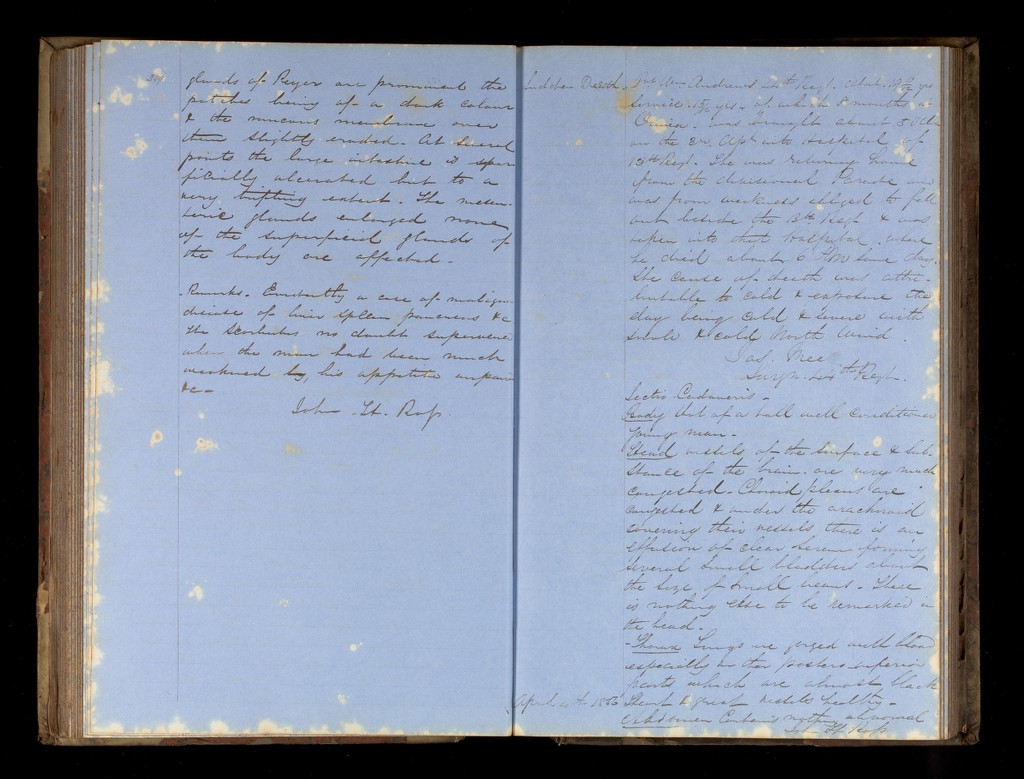 glands of Peyer are prominent the
patches being of a dark colour
& the mucous membrane over
them slightly eroded. At several
points the large intestine is super
ficially ulcerated but to a
very trifling extent. The mesen
teric glands enlarged none
of the superficial glands of
the body are affected.
Remarks. Evidently a case of malign
disease of liver spleen pancreas &c
The Scorbutus no doubt supervened
when the man had been much
weakened by, his appetite impair
&c -
John St. Ross.
Sudden Death.
Andrews Regt. aetat.
Service yrs. of which 8 months in
Crimea. was brought about 5
on the 3rd Apl into Hospital of
13th Regt. He was returning home
from the divisional Parade and
was from weakness obliged to fall
out beside the 13th Regt & was
taken into their Hospital, where
he died about 6 PM same day.
The cause of death was attri-
butable to cold & exposure the
day being cold & severe with
& cold North Wind.
Jas. Mee
Surgn. 44th Regt.
Sectio Cadaveris -
Body that of a tall well conditioned
young man -
Head vessels of the surface & sub
stance of the brain are very much
congested. Choroid plexus are
congested & under the arachnoid
covering their vessels there is an
effusion of clear serum forming
several small bladders about
the size of small beans. There
is nothing else to be remarked in
the head.
Thorax Lungs are gorged with blood
especially in their postero superior
parts which are almost black
Heart & great vessels healthy -
Abdomen Contains nothing abnormal
April 4th. 1856
John St Ross